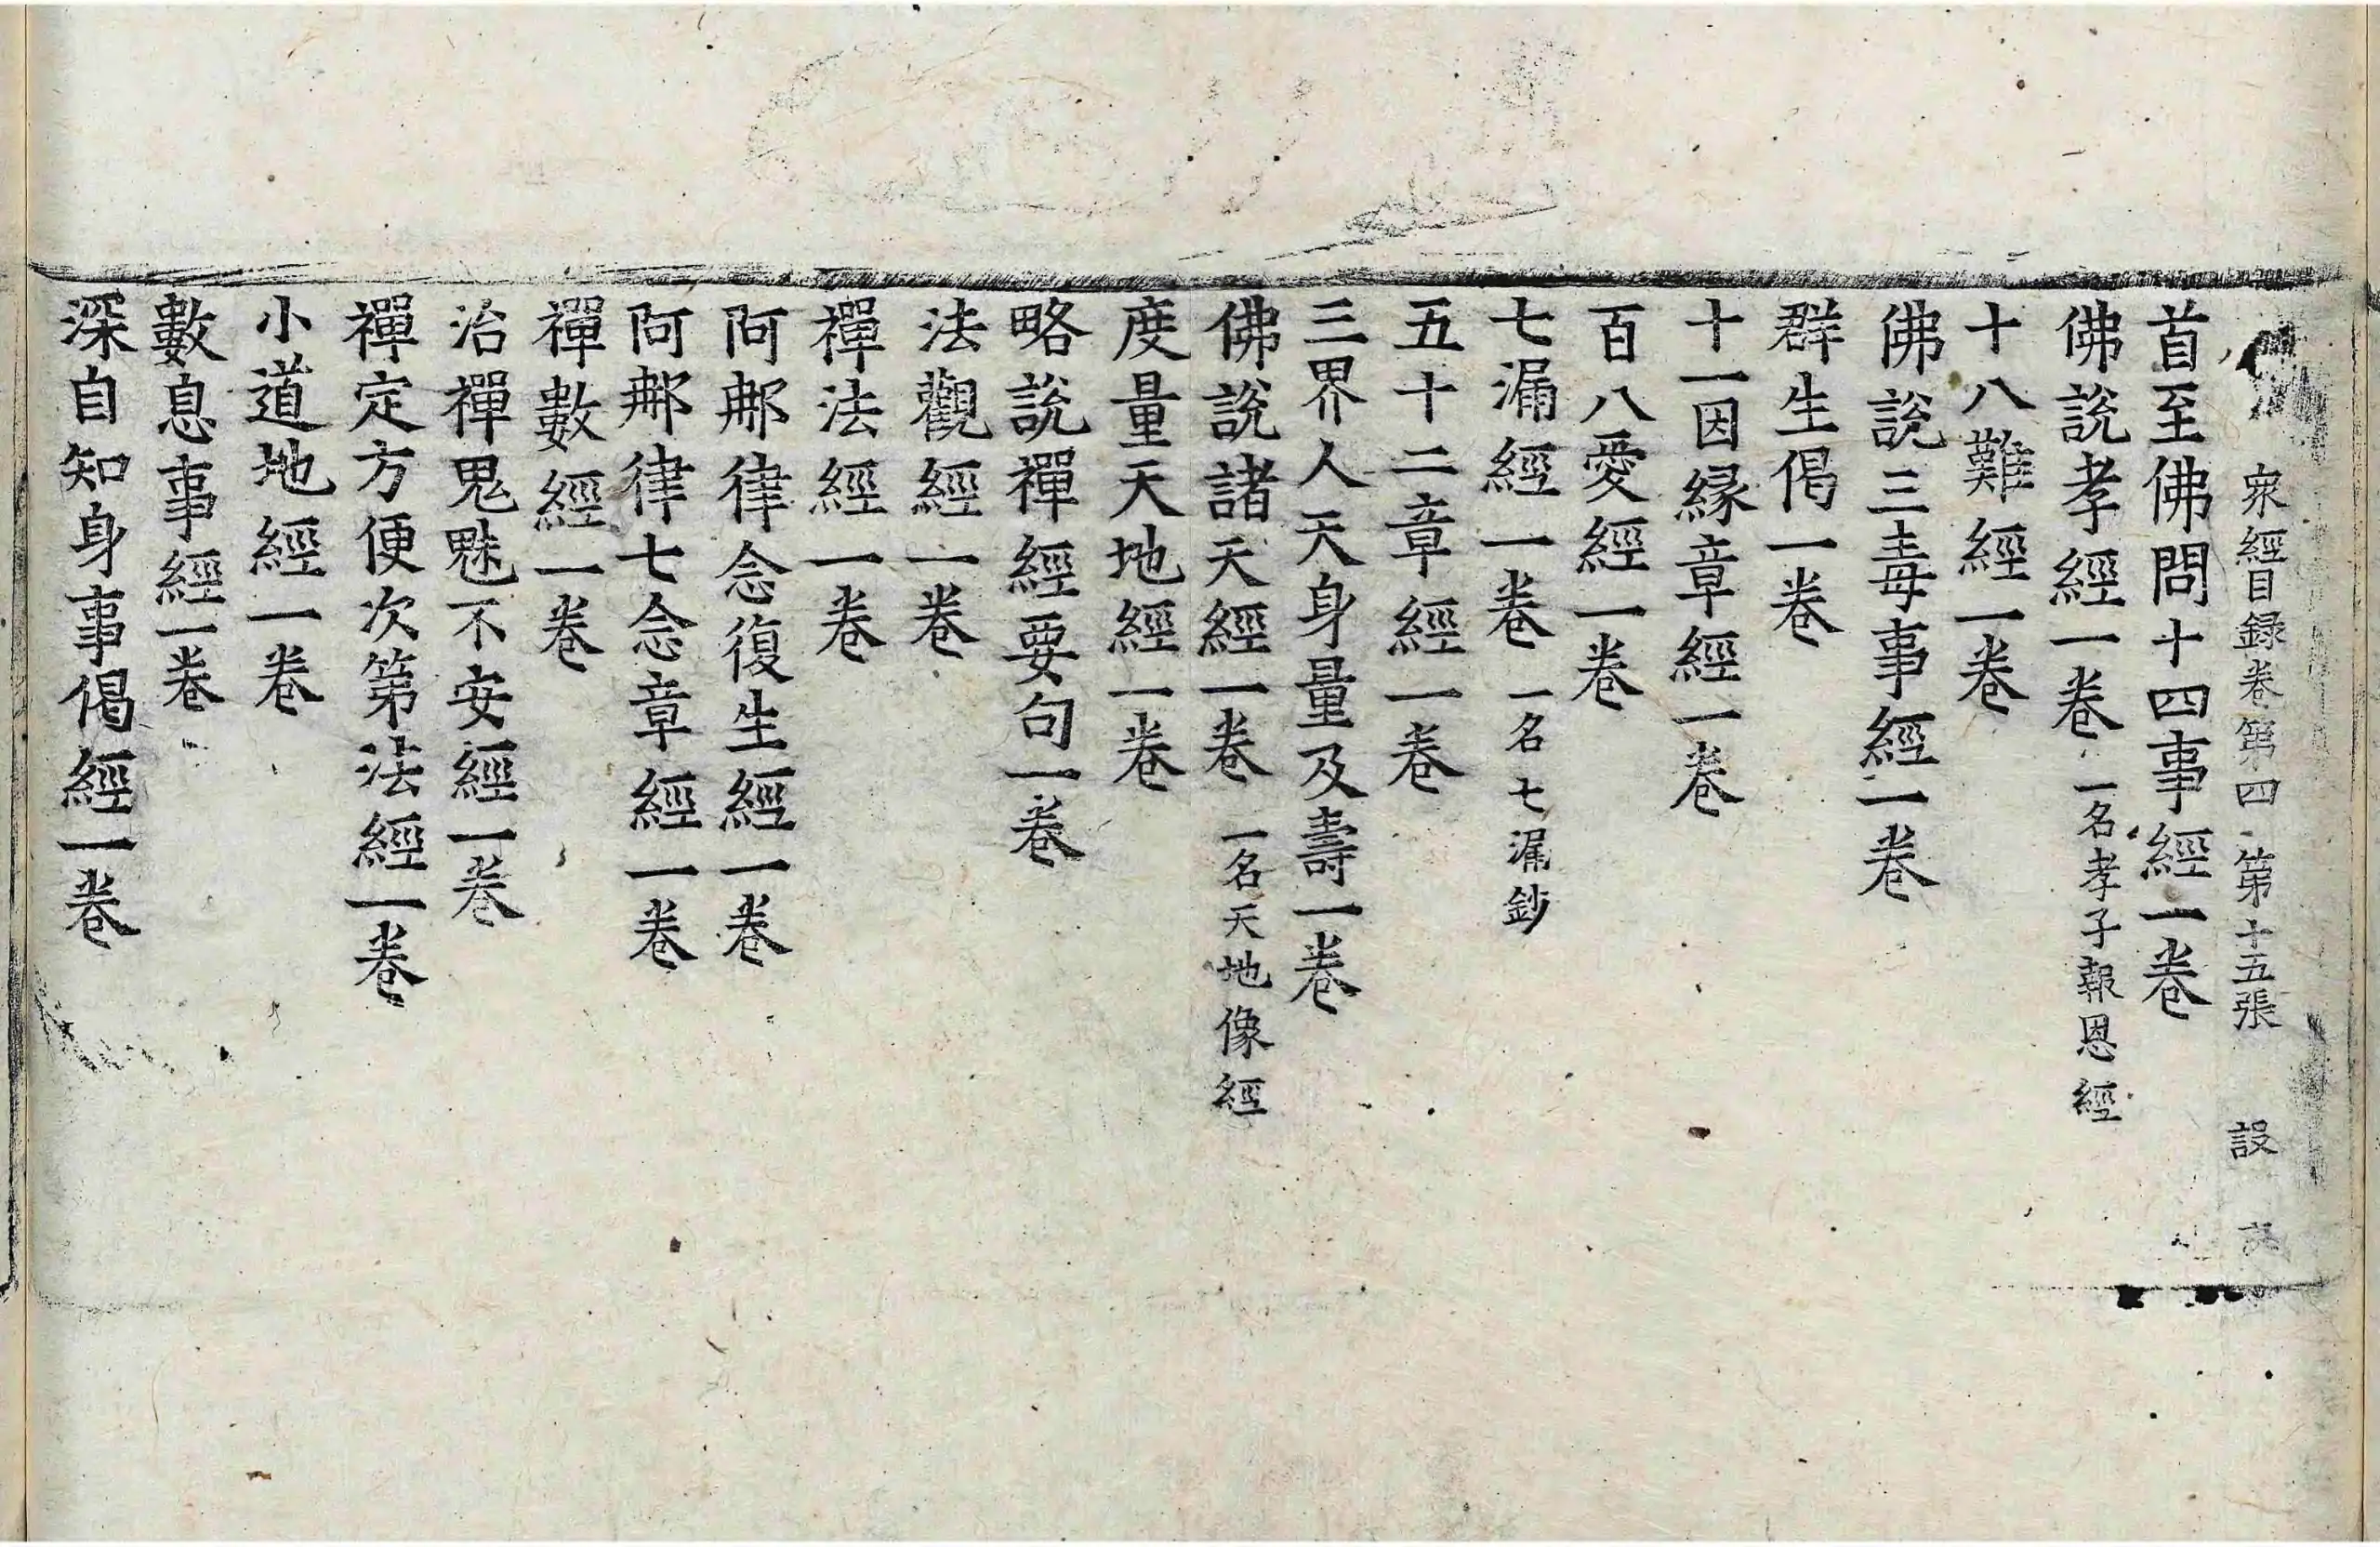 衆經目録卷第四 第十五張 設
首至佛問十四事經一卷
佛説孝經一卷 一名孝子報恩經
十八難經一卷
佛説三毒事經一卷
群生偈一卷
十一因縁章經一卷
百八愛經一卷
七漏經一卷 一名七漏鈔
五十二章經一卷
三界人天身量及壽一卷
佛説諸天經一卷 一名天地像經
度量天地經一卷
略説禪經要句一卷
法觀經一卷
禪法經一卷
阿郍律念復生經一卷
阿郍律七念章經一卷
禪數經一卷
治禪鬼魅不安經一卷
禪定方便次第法經一卷
小道地經一卷
數息事經一卷
深自知身事偈經一卷